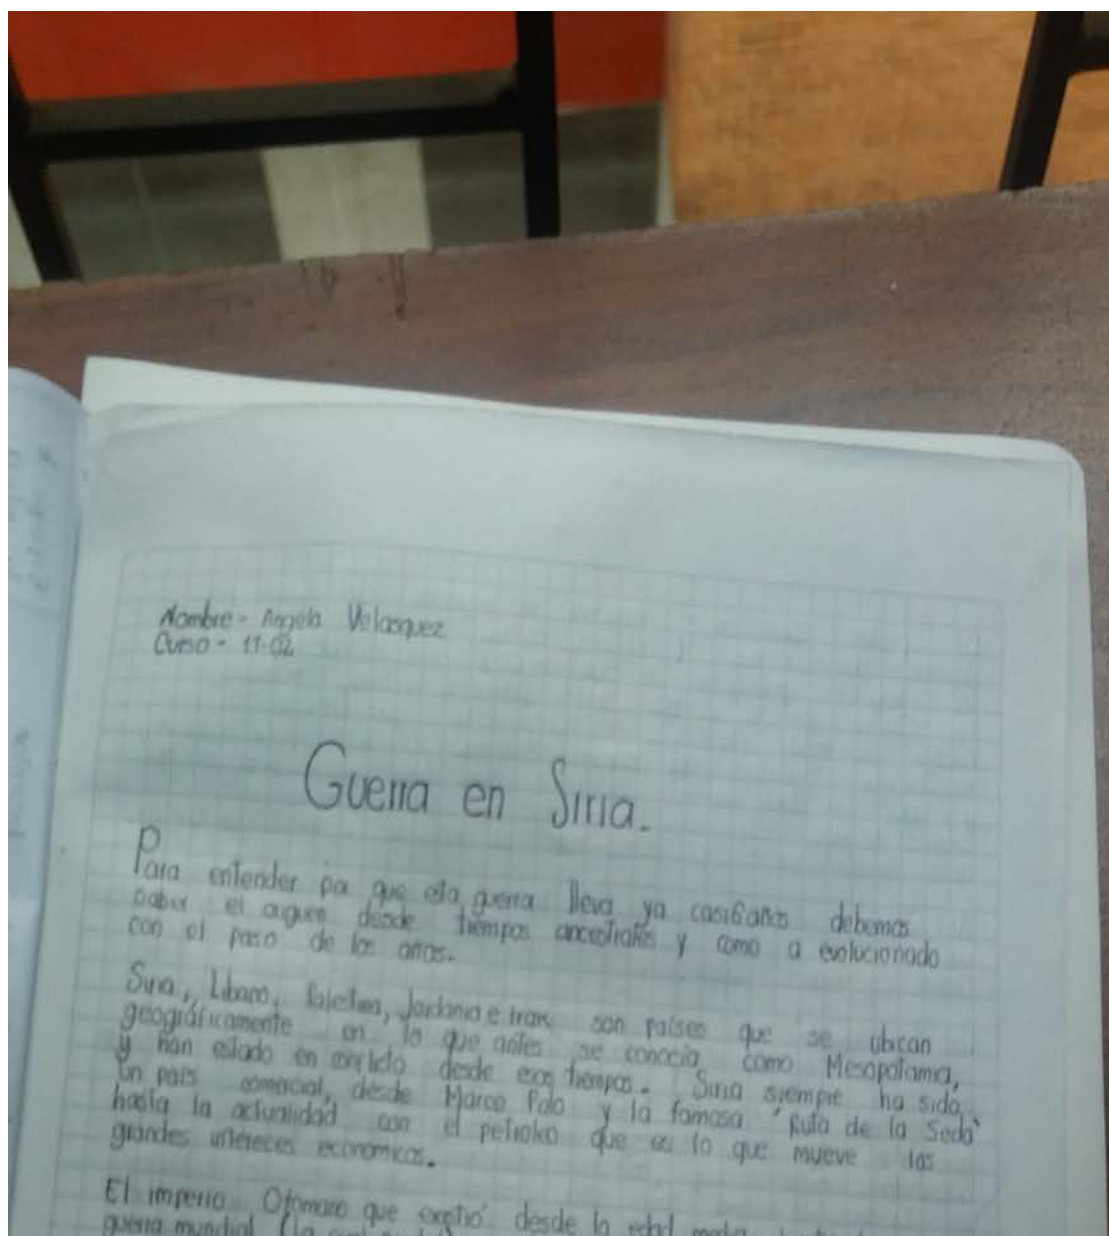 Nombre - Angela Velasquez
Curso - 11-02
Guerra en Siria.
Para entender por que esta guerra lleva ya casi 6 años debemos
saber el origen desde tiempos ancestrales y como a evolucionado
con el paso de los años.
Siria, Libano, Palestina, Jordania e Iran son países que se ubican
geográficamente en lo que antes se conocia como Mesopotamia,
y han estado en conflicto desde esos tiempos. Siria siempre ha sido
un pais comercial, desde Marco Polo y la famosa "Ruta de la Seda"
hasta la actualidad con el petroleo que es lo que mueve los
grandes intereces economicos.
El imperio Otomano que existió desde la edad media
guerra mundial